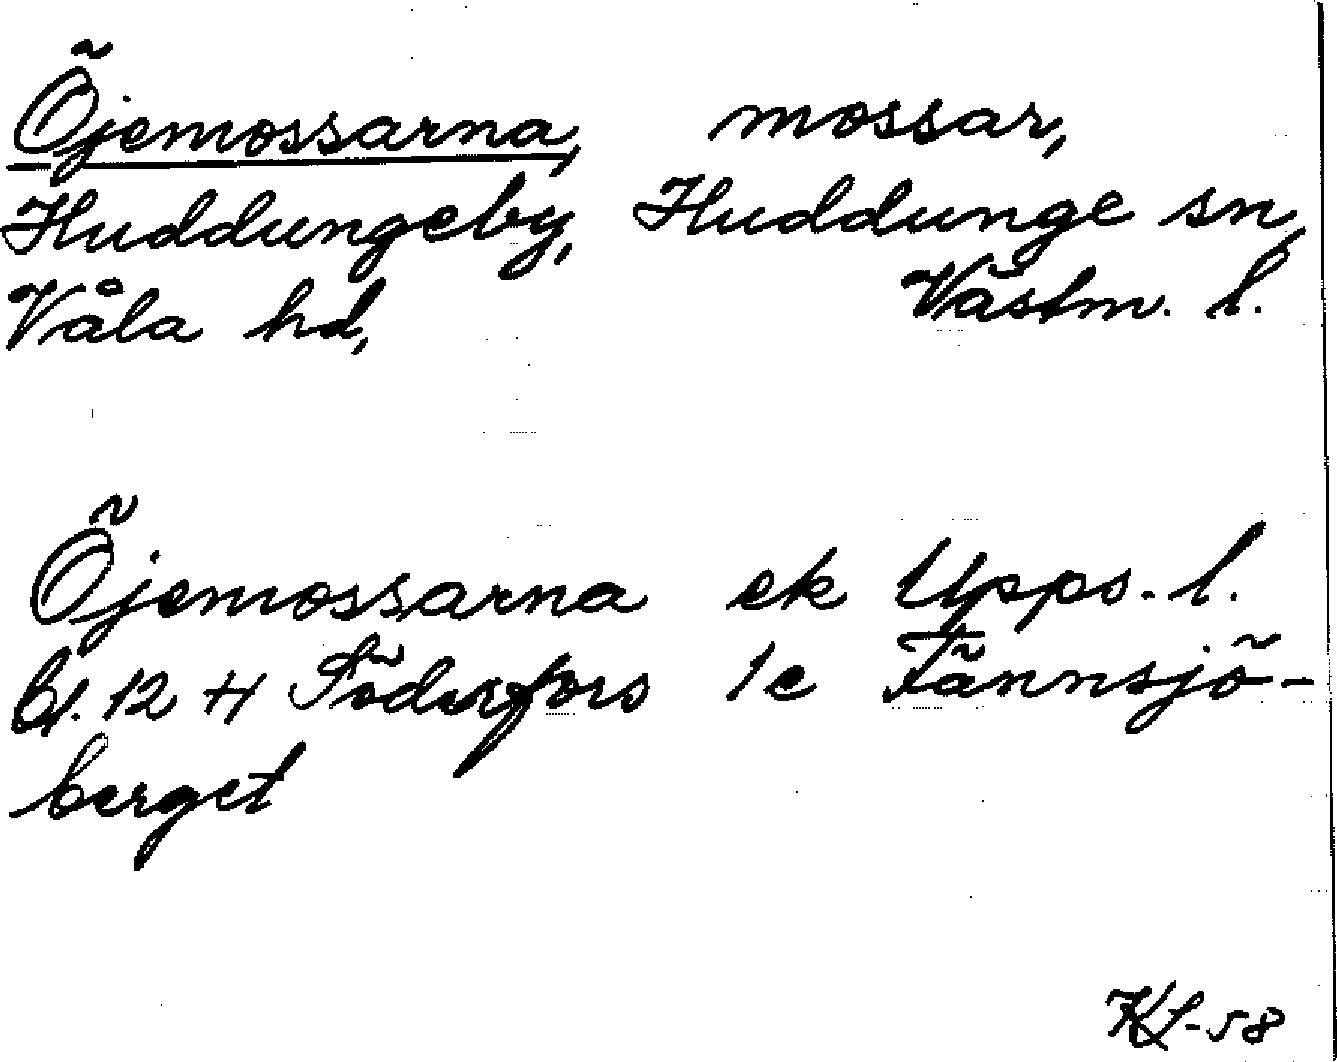 Öjemossarna, mossar,
Huddungeby, Huddunge sn,
Våla hd, Västm. l.
Öjemossarna ek Upps. l.
bl. 12 H Söderfors 1e Tännsjö-
berget